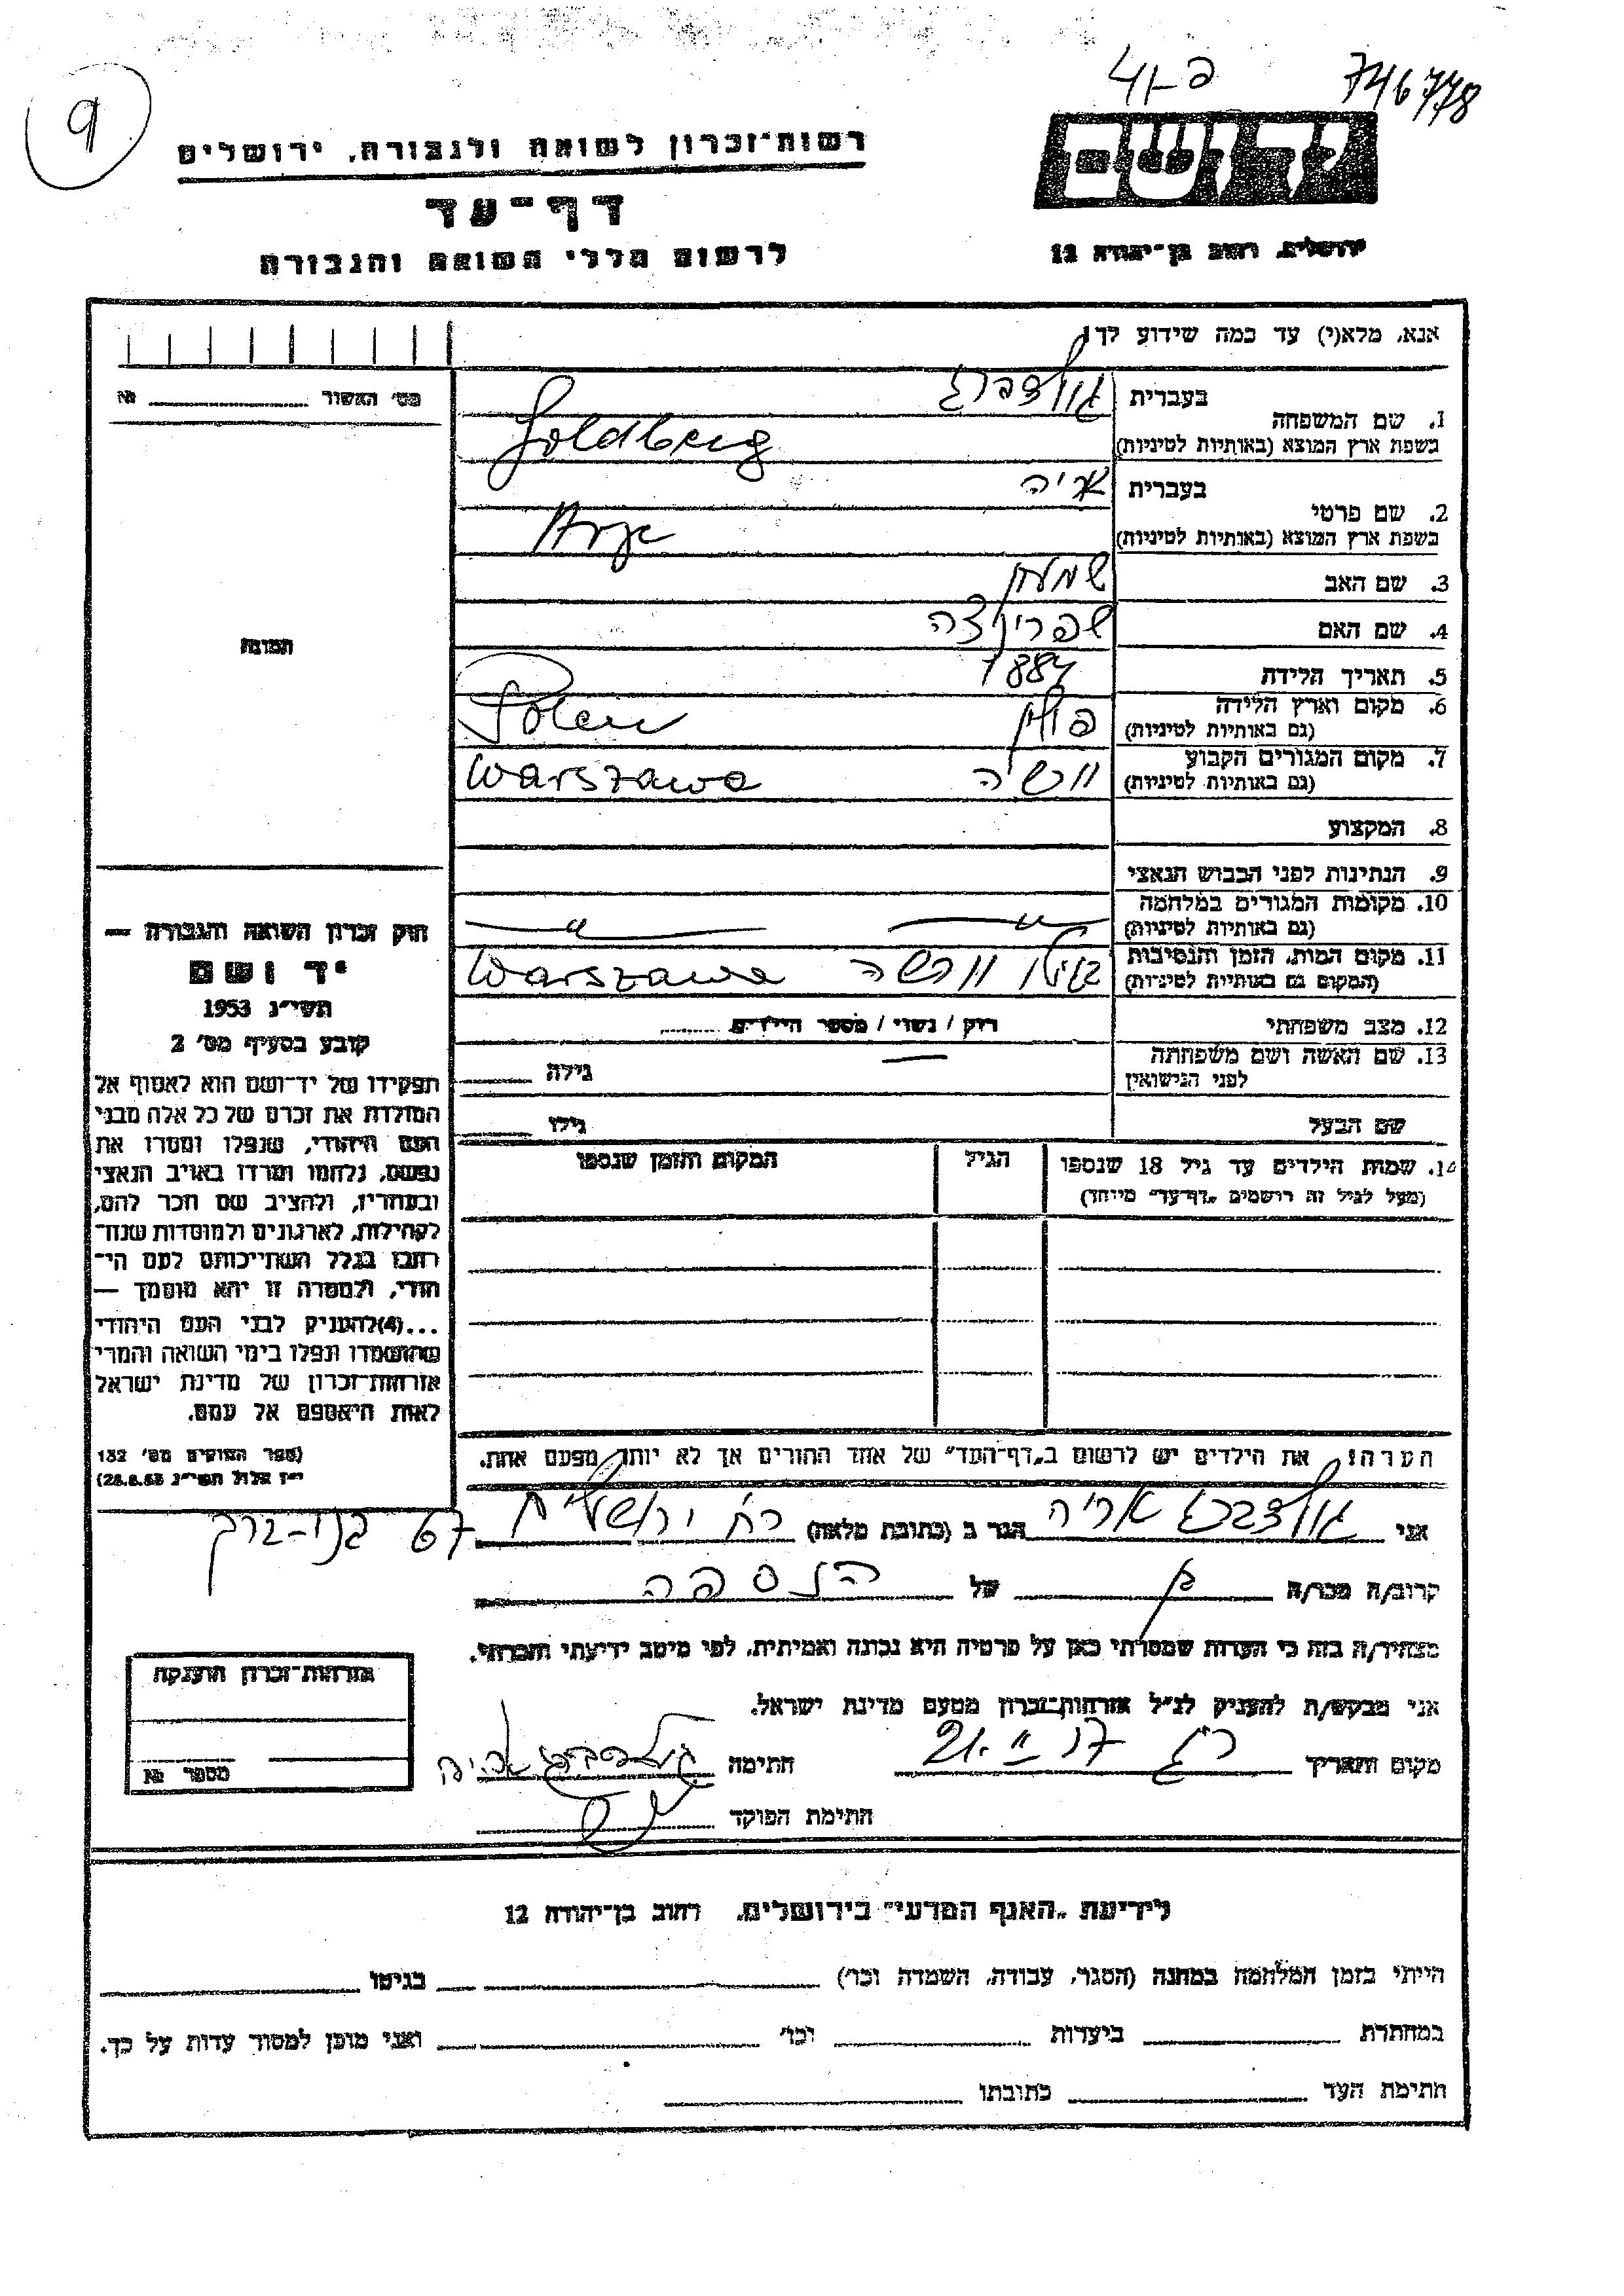 9
פ-41
746778
רשות־זכרון לשואה ולגבורה, ירושלים
יד ושם
דף־עד
לרשום חללי השואה והגבורה
ירושלים, רחוב בן־יהודה 12
אנא, מלא(י) עד כמה שידוע לך!
מס׳ האשור № ______
1. שם המשפחה
בעברית גולדברג
בשפת ארץ המוצא (באותיות לטיניות) Goldberg
2. שם פרטי
בעברית אריה
בשפת ארץ המוצא (באותיות לטיניות) Arje
3. שם האב
4. שם האם שפרינצה
5. תאריך הלידה 1884
6. מקום וארץ הלידה (גם באותיות לטיניות) פולין Polen
7. מקום המגורים הקבוע (גם באותיות לטיניות) ורשה Warszawa
8. המקצוע
9. הנתינות לפני הכבוש הנאצי
10. מקומות המגורים במלחמה (גם באותיות לטיניות) —״— —״—
11. מקום המות, הזמן והנסיבות (המקום גם באותיות לטיניות) ורשה Warszawa
12. מצב משפחתי רווק / נשוי / מספר הילדים ......
13. שם האשה ושם משפחתה לפני הנישואין — גילה ____
שם הבעל גילו ____
14. שמות הילדים עד גיל 18 שנספו
(מעל לגיל זה רושמים „דף־עד״ מיוחד)
הגיל
המקום והזמן שנספו
התמונה
חוק זכרון השואה והגבורה —
יד ושם
תשי״ג 1953
קובע בסעיף מס׳ 2
תפקידו של יד־ושם הוא לאסוף אל
המולדת את זכרם של כל אלה מבני
העם היהודי, שנפלו ומסרו את
נפשם, נלחמו ומרדו באויב הנאצי
ובעוזריו, ולהציב שם וזכר להם,
לקהילות, לארגונים ולמוסדות שנח־
רבו בגלל השתייכותם לעם הי־
הודי, ולמטרה זו יהא מוסמך —
...(4)להעניק לבני העם היהודי
שהושמדו ונפלו בימי השואה והמרי
אזרחות־זכרון של מדינת ישראל
לאות היאספם אל עמם.
(ספר החוקים מס׳ 132
י״ז אלול תשי״ג 28.8.53)
הערה: את הילדים יש לרשום ב„דף־העד״ של אחד ההורים אך לא יותר מפעם אחת.
אני גולדברג אריה הגר ב (כתובת מלאה) רח׳ ירושלים 67 בני-ברק
קרוב/ה מכר/ה בן של הנספה
מצהיר/ה בזה כי העדות שמסרתי כאן על פרטיה היא נכונה ואמיתית, לפי מיטב ידיעתי והכרתי.
אני מבקש/ת להעניק לנ״ל אזרחות־זכרון מטעם מדינת ישראל.
מקום ותאריך חתימה גולדברג אריה
חתימת הפוקד
אזרחות־זכרון הוענקה
מספר №
לידיעת „האגף המדעי״ בירושלים, רחוב בן־יהודה 12
הייתי בזמן המלחמה במחנה (הסגר, עבודה, השמדה וכו׳) ______ בגיטו ______
במחתרת ______ ביערות ______ וכו׳ ______ ואני מוכן למסור עדות על כך.
חתימת העד ______ כתובתו ______